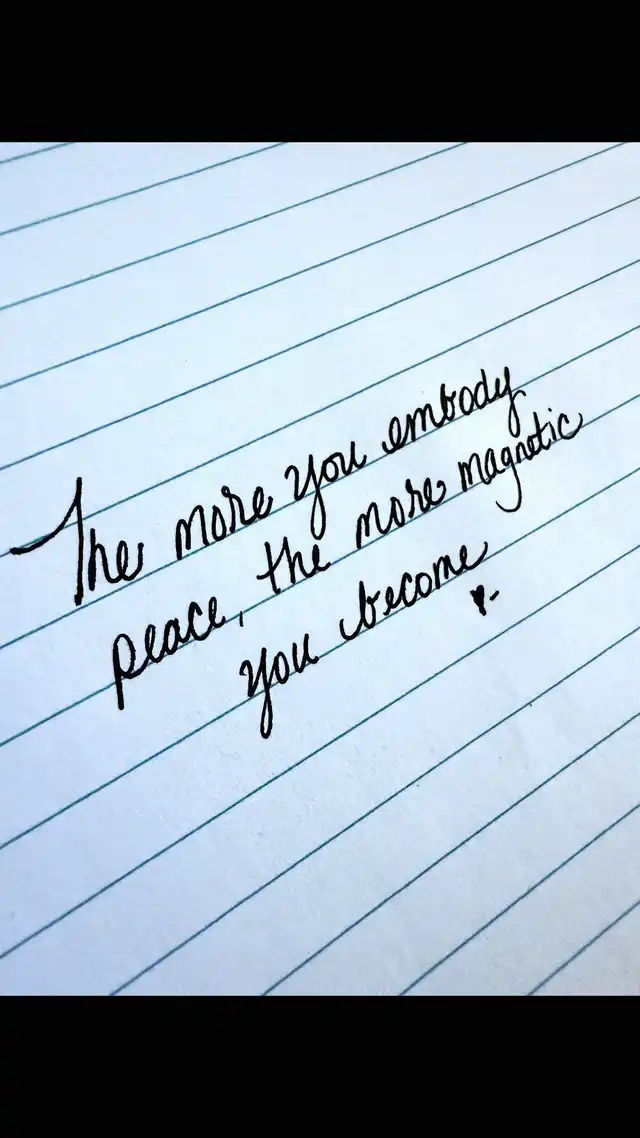 The more you embody
peace, the more magnetic
you become